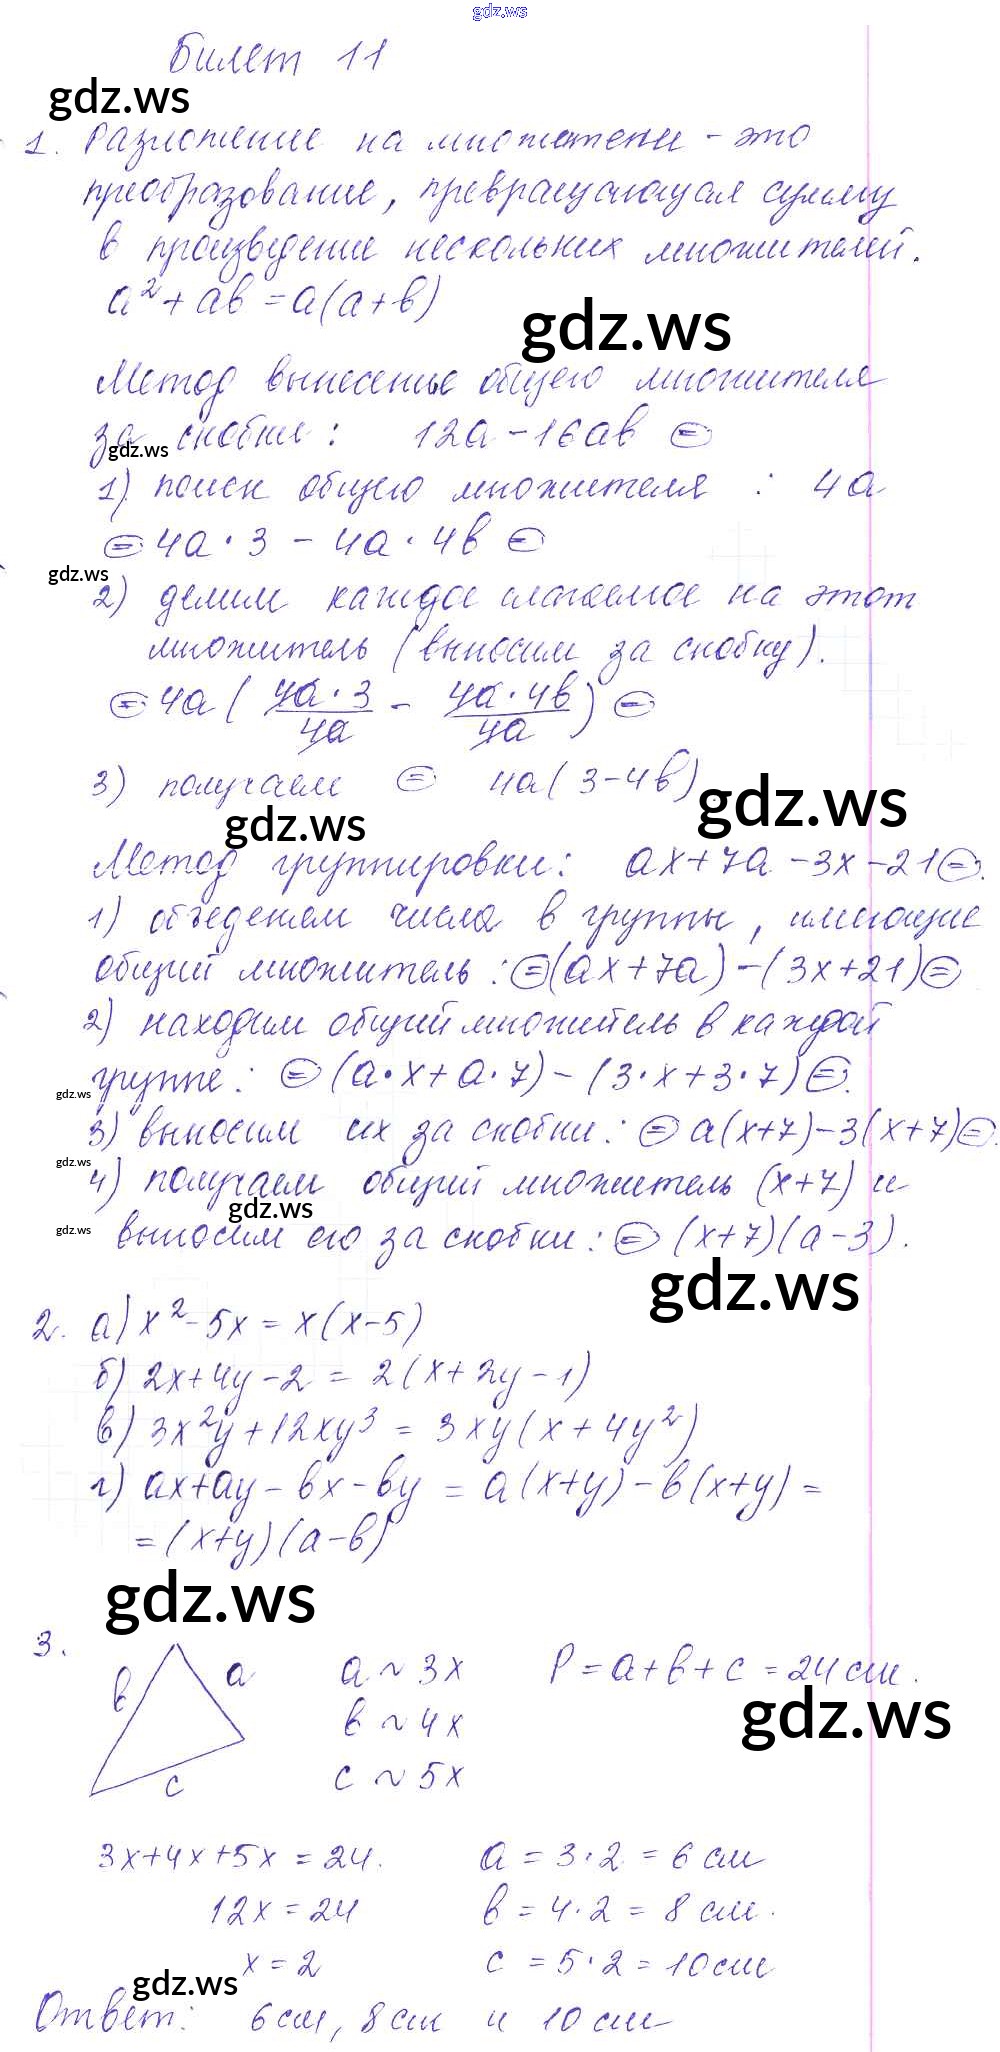 gdz.ws
Билет 11
gdz.ws
1. Разложение на множители - это
преобразование, превращающая сумму
в произведение нескольких множителей.
a² + ab = a(a+b)
gdz.ws
Метод вынесенье общего множителя
за скобки : 12a - 16ab ⊜
gdz.ws
1) поиск общего множителя : 4a
⊜ 4a · 3 - 4a · 4b ⊜
gdz.ws
2) делим каждое слагаемое на этот
множитель (выносим за скобку).
⊜ 4a ( 4a·3/4a - 4a·4b/4a ) ⊜
3) получаем ⊜ 4a( 3-4b)
gdz.ws
gdz.ws
Метод группировки: ax+7a-3x-21 ⊜.
1) объеденяем числа в группы, имеющие
общий множитель: ⊜ (ax+7a)-(3x+21) ⊜
2) находим общий множитель в каждой
группе: ⊜ (a·x+a·7)-(3·x+3·7) ⊜.
gdz.ws
3) выносим их за скобки: ⊜ a(x+7)-3(x+7) ⊜.
gdz.ws
4) получаем общий множитель (x+7) и
gdz.ws
gdz.ws
выносим его за скобки: ⊜ (x+7)(a-3).
gdz.ws
2. а) x²-5x = x(x-5)
б) 2x+4y-2 = 2(x+2y-1)
в) 3x²y+12xy³ = 3xy(x+4y²)
г) ax+ay-bx-by = a(x+y)-b(x+y) =
=(x+y)(a-b)
gdz.ws
3. b a c
a ~ 3x P = a+b+c = 24 см.
gdz.ws
b ~ 4x
c ~ 5x
3x+4x+5x = 24. a = 3·2 = 6 см
12x = 24 b = 4·2 = 8 см.
x = 2 c = 5·2 = 10 см
gdz.ws
Ответ: 6 см, 8 см и 10 см